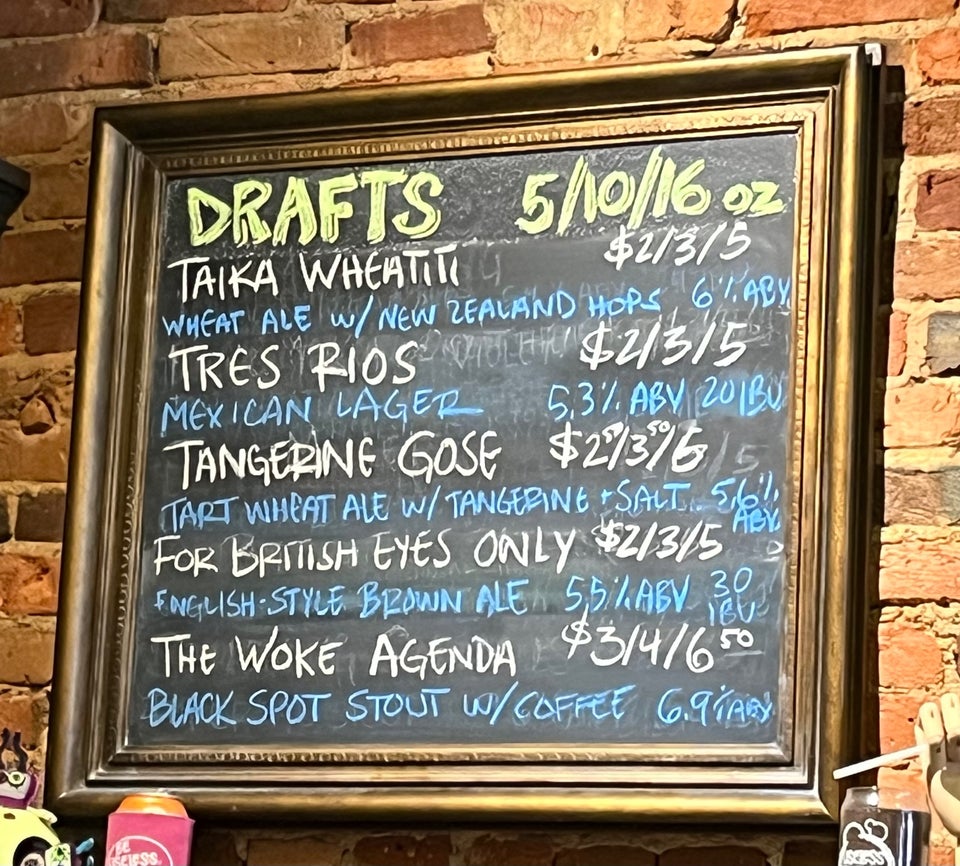 DRAFTS 5/10/16 oz
TAIKA WHEATITI $2/3/5
WHEAT ALE W/ NEW ZEALAND HOPS 6% ABV
TRES RIOS $2/3/5
MEXICAN LAGER 5.3% ABV 20 IBU
TANGERINE GOSE $2⁵⁰/3⁵⁰/6
TART WHEAT ALE W/ TANGERINE + SALT 5.6% ABV
FOR BRITISH EYES ONLY $2/3/5
ENGLISH-STYLE BROWN ALE 5.5% ABV 30 IBU
THE WOKE AGENDA $3/4/6⁵⁰
BLACK SPOT STOUT W/ COFFEE 6.9% ABV